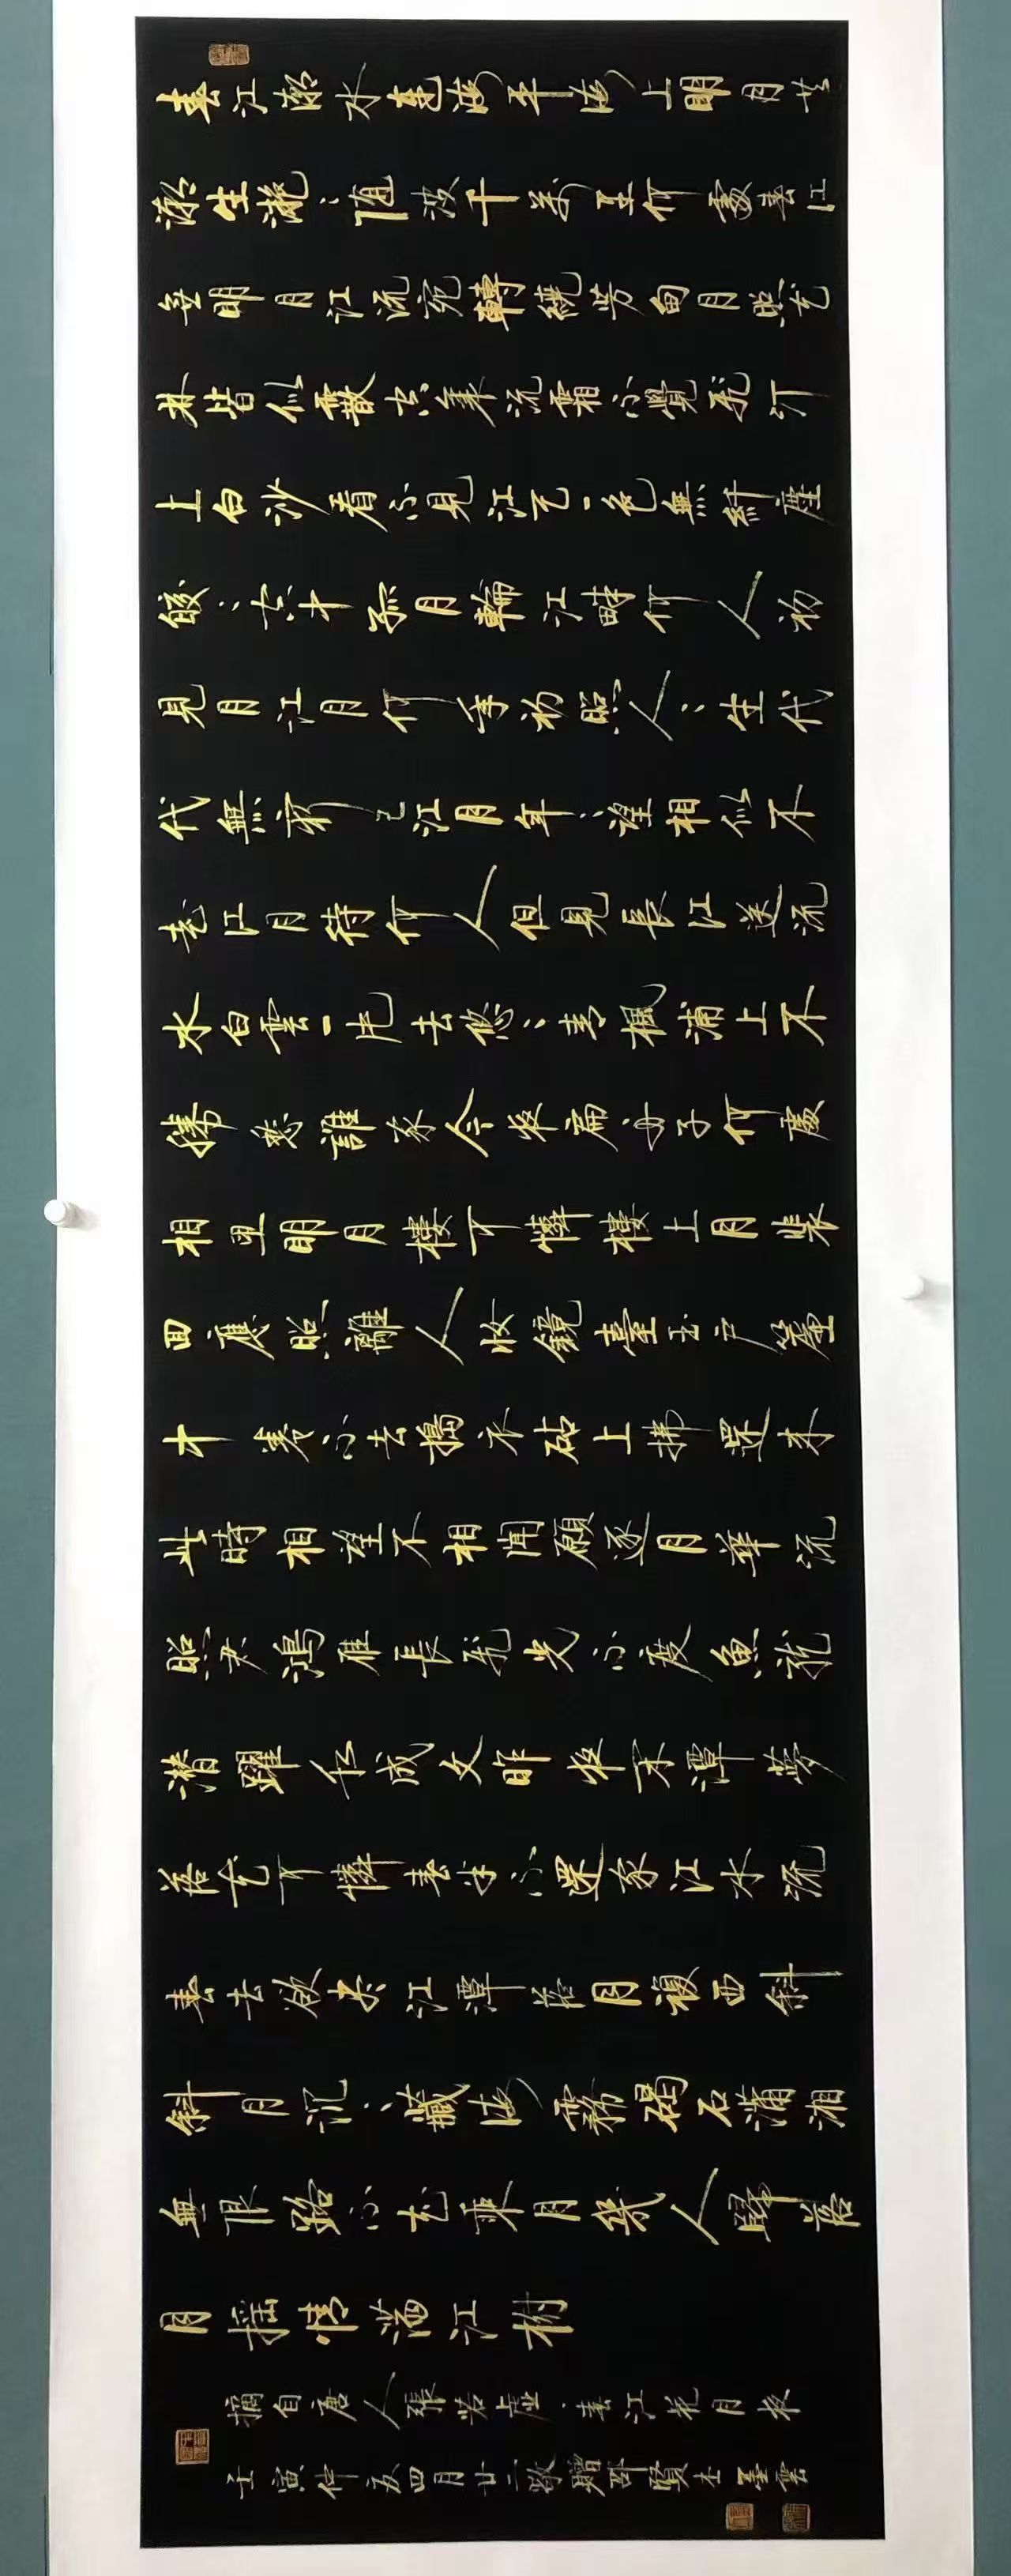 春江潮水連海平海上明月共
潮生灩〻隨波千萬里何處春江
無明月江流宛轉繞芳甸月照花
林皆似霰空裏流霜不覺飛汀
上白沙看不見江天一色無纖塵
皎〻空中孤月輪江畔何人初
見月江月何年初照人〻生代
代無窮已江月年〻望相似不
知江月待何人但見長江送流
水白雲一片去悠〻青楓浦上不
勝愁誰家今夜扁舟子何處
相思明月樓可憐樓上月裴
回應照離人妝鏡臺玉戶簾
中卷不去搗衣砧上拂還來
此時相望不相聞願逐月華流
照君鴻雁長飛光不度魚龍
潛躍水成文昨夜閒潭夢
落花可憐春半不還家江水流
春去欲盡江潭落月復西斜
斜月沉〻藏海霧碣石瀟湘
無限路不知乘月幾人歸落
月搖情滿江樹
摘自唐人張若虛·春江花月夜
壬寅仲夏四月廿二敬贈賢士墨雲